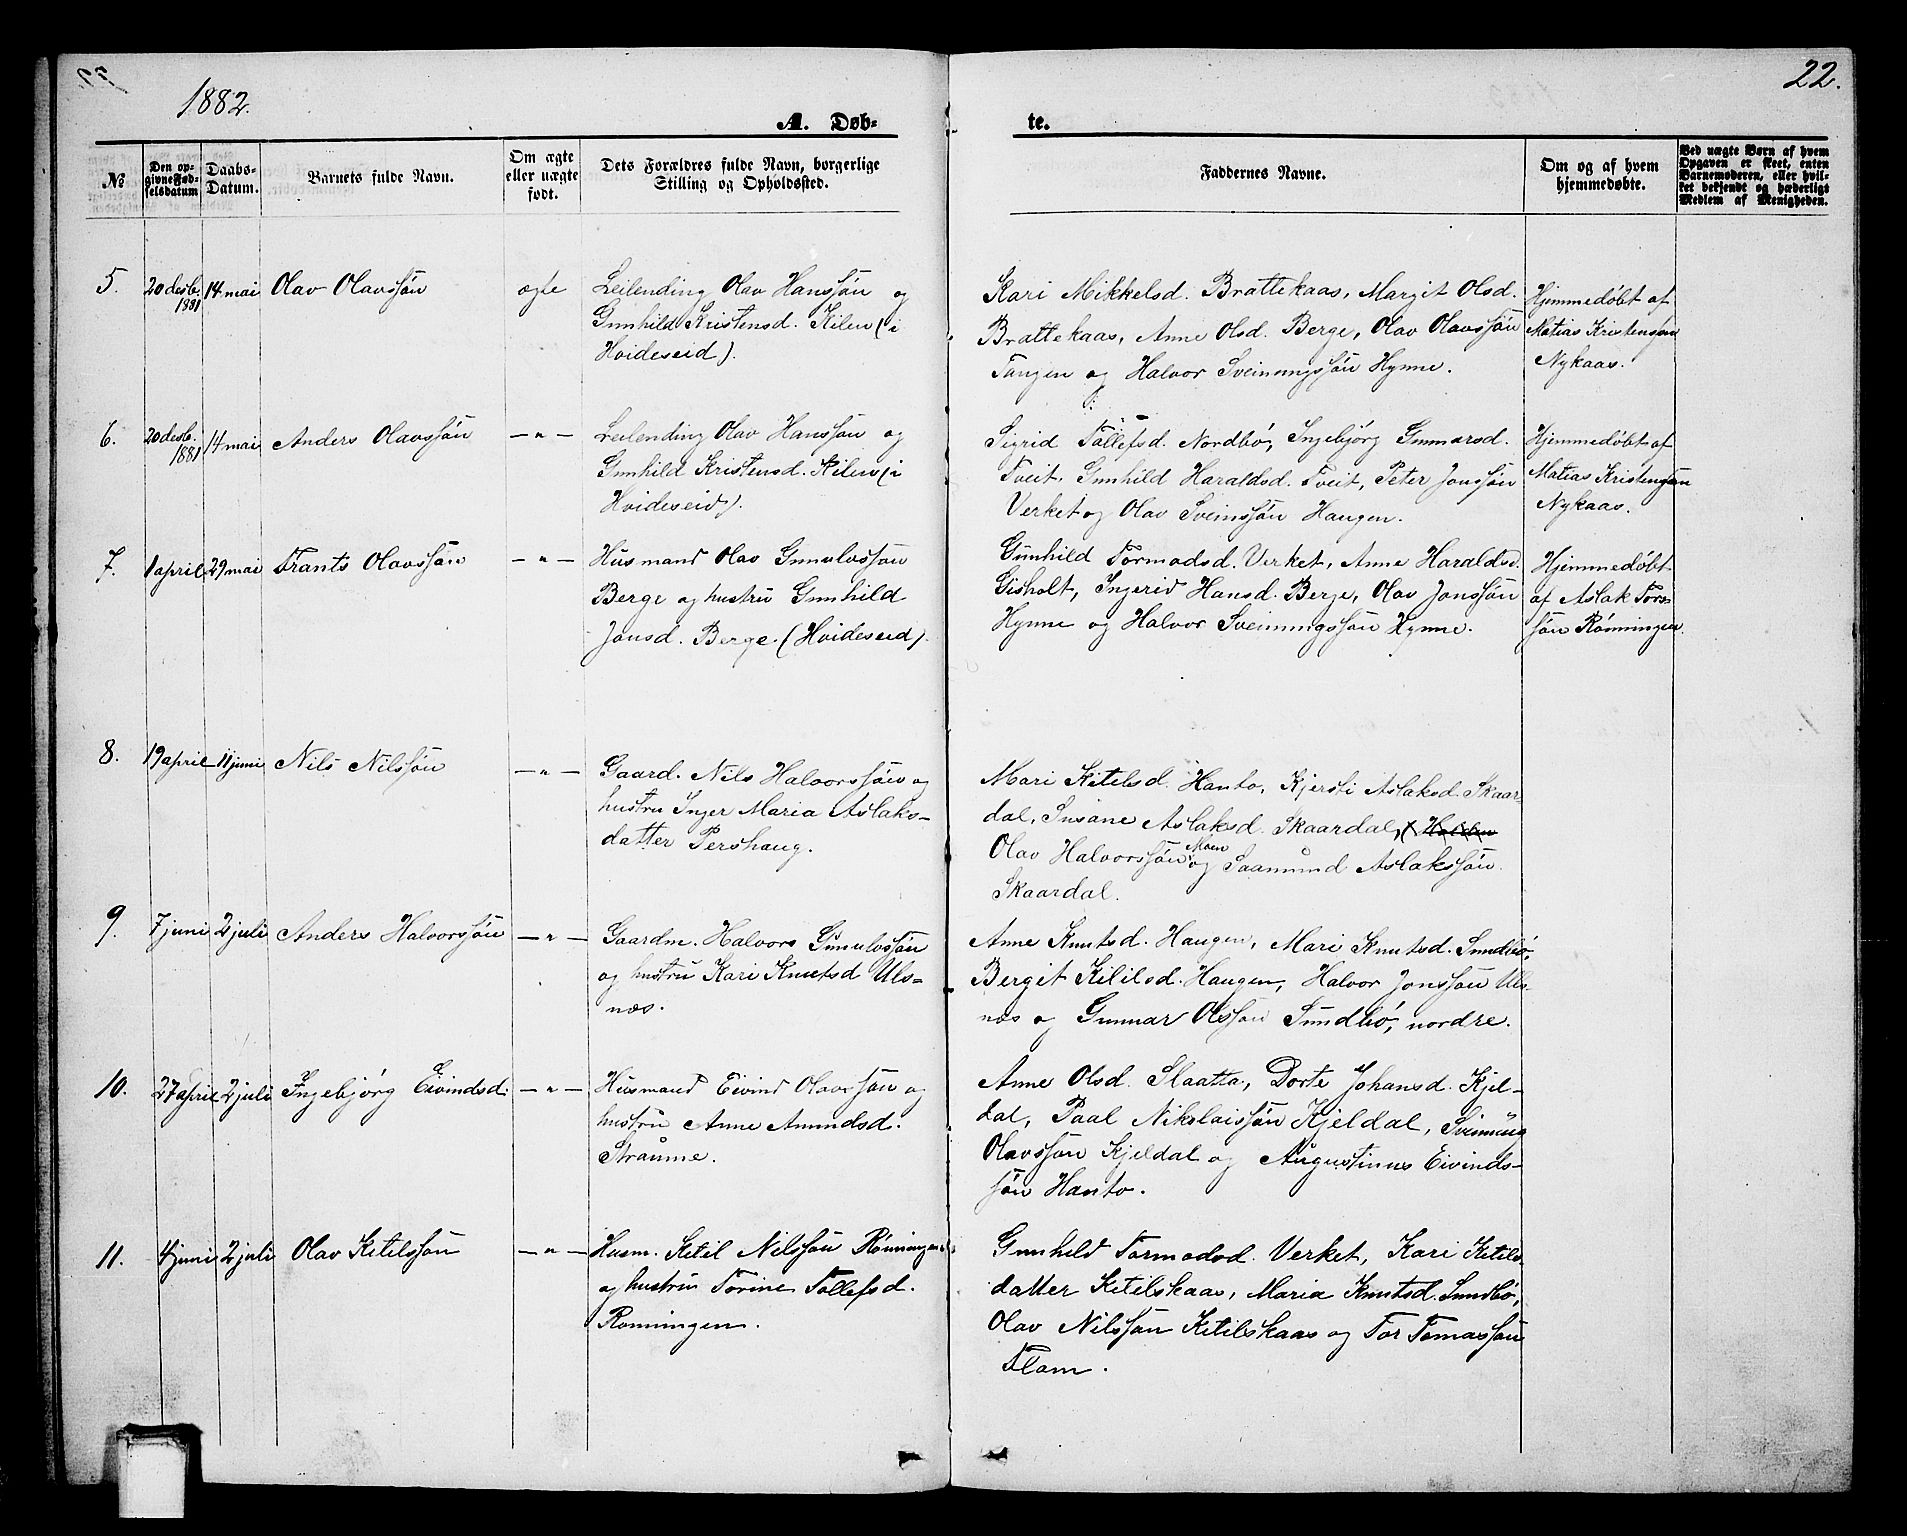 1882.
22.
A. Døb-
te.
№
Den op-
givne Fød-
selsdatum
Daabs-
Datum.
Barnets fulde Navn.
Om ægte
eller uægte
født.
Dets Forældres fulde Navn, borgerlige
Stilling og Opholdssted.
Faddernes Navne.
Om og af hvem
hjemmedøbte.
Ved uægte Børn af hvem
Opgaven er skeet, enten
Barnemoderen, eller hvil-
ket bekjendt og hæderligt
Medlem af Menigheden.
5. 20 desb. 14 mai Olav Olavssøn ægte
1881
Leilending Olav Hanssøn og
Gunhild Kristensd. Kilen (i
Hvideseid).
Kari Mikkelsd. Brattekaas, Margit Olsd.
Brattekaas, Anne Olsd. Berge, Olav Olavssøn
Tangen og Halvor Sveinungssøn Hynne.
Hjemmedøbt af
Matias Kristenssøn
Nykaas.
6. 20 desb. 14 mai Anders Olavssøn —"—
1881
Leilending Olav Hanssøn og
Gunhild Kristensd. Kilen (i
Hvideseid).
Sigrid Tollefsd. Nordbø, Ingebjørg Gunnarsd.
Tveit, Gunhild Haraldsd. Tveit, Peter Jonssøn
Verket og Olav Sveinssøn Haugen.
Hjemmedøbt af
Matias Kristenssøn
Nykaas.
7. 1 april 29 mai Frants Olavssøn —"—
Husmand Olav Gunulvssøn
Berge og hustru Gunhild
Jonsd. Berge. (Hvideseid).
Gunhild Tormodsd. Verket, Anne Haraldsd.
Gisholt, Ingerid Hansd. Berge, Olav Jonssøn
Hynne og Halvor Sveinungssøn Hynne.
Hjemmedøbt
af Aslak Tors-
søn Rønningen.
8. 19 april 11 juni Nils Nilssøn —"—
Gaard. Nils Halvorssøn og
hustru Inger Maria Aslaks-
datter Pershaug.
Mari Kitelsd. Hanto, Kjersti Aslaksd. Skaar-
dal, Susane Aslaksd. Skaardal,
Olav Halvorssøn Moen og Saamund Aslakssøn
Skaardal.
9. 7 juni 2 juli Anders Halvorssøn —"—
Gaardm. Halvors Gunulvssøn
og hustru Kari Knutsd Uls-
næs.
Anne Knutsd. Haugen, Mari Knutsd. Sundbø,
Bergit Kililsd. Haugen, Halvor Jonssøn Uls-
næs og Gunnar Olssøn Sundbø, nordre.
10. 27 april 2 juli Ingebjørg Eivindsd. —"—
Husmand Eivind Olavssøn og
hustru Anne Amundsd.
Straume.
Anne Olsd. Slaatta, Dorte Johansd. Kjel-
dal, Paal Nikolaissøn Kjeldal, Sveinung
Olavssøn Kjeldal og Augustinus Eivinds-
søn Hanto.
11. 4 juni 2 juli Olav Ketilssøn —"—
Husm. Ketil Nilssøn Rønningen
og hustru Torine Tollefsd.
Rønningen.
Gunhild Tormodsd. Verket, Kari Ketils-
datter Ketilskaas, Maria Knutsd. Sundbø,
Olav Nilssøn Ketilskaas og Tor Tomassøn
Flom.